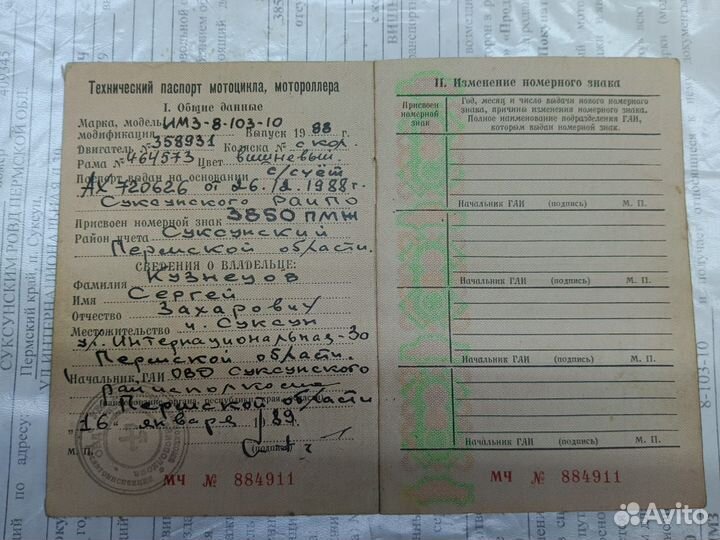 Технический паспорт мотоцикла, мотороллера
I. Общие данные
Марка, модель ИМЗ-8-103-10
модификация Выпуск 1988 г.
Двигатель № 358931 Коляска № с кол.
Рама № 464573 Цвет вишневый
Паспорт выдан на основании с/счёт
АХ 720626 от 26.12.1988г.
Суксунского РАИПО
Присвоен номерной знак 3850 ПМЖ
Район учета Суксунский
Пермской области.
СВЕДЕНИЯ О ВЛАДЕЛЬЦЕ:
Фамилия Кузнецов
Имя Сергей
Отчество Захарович
Местожительство п. Суксун
ул. Интернациональная-30
Пермской области.
Начальник, ГАИ ОВД Суксунского
Райисполкома
Пермской области
"16" января 1989
М. П. (подпись)
МЧ № 884911
II. Изменение номерного знака
Присвоен номерной знак
Год, месяц и число выдачи нового номерного
знака, причина изменения номерного знака.
Полное наименование подразделения ГАИ,
которым выдан номерной знак.
Начальник ГАИ (подпись) М. П.
Начальник ГАИ (подпись) М. П.
Начальник ГАИ (подпись) М. П.
Начальник ГАИ (подпись) М. П.
МЧ № 884911
СУКСУНСКИМ РОВД ПЕРМСКОЙ ОБЛ.
Пермский край, пг. Суксун,
по адресу
409845
8-103-10
Avito